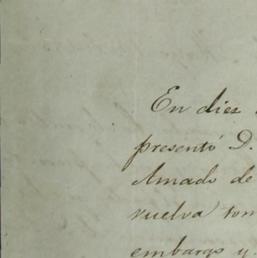 En diez
presentó D.
Amado de
vuelva tom
embargo y